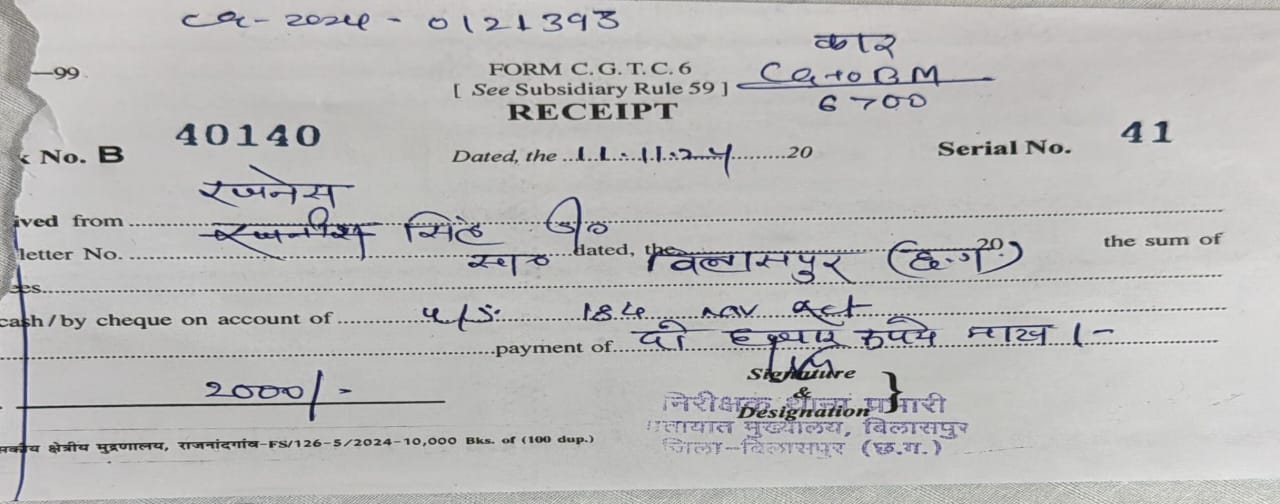 CG-2024-0121393
कार
CG10BM
6700
—99
FORM C.G.T.C. 6
[ See Subsidiary Rule 59 ]
RECEIPT
k No. B 40140 Dated, the 11.11.24 20 Serial No. 41
रजनेस
ived from सिंह
letter No. dated, the 20 the sum of
बिलासपुर (छ.ग.)
ees
cash/by cheque on account of u/s. 184 MV Act
payment of दो हजार रूपये मात्र ।-
2000/-
Signature
&
Designation
निरीक्षक थाना प्रभारी
यातायात मुख्यालय, बिलासपुर
जिला-बिलासपुर (छ.ग.)
सकीय क्षेत्रीय मुद्रणालय, राजनांदगांव-FS/126-5/2024-10,000 Bks. of (100 dup.)